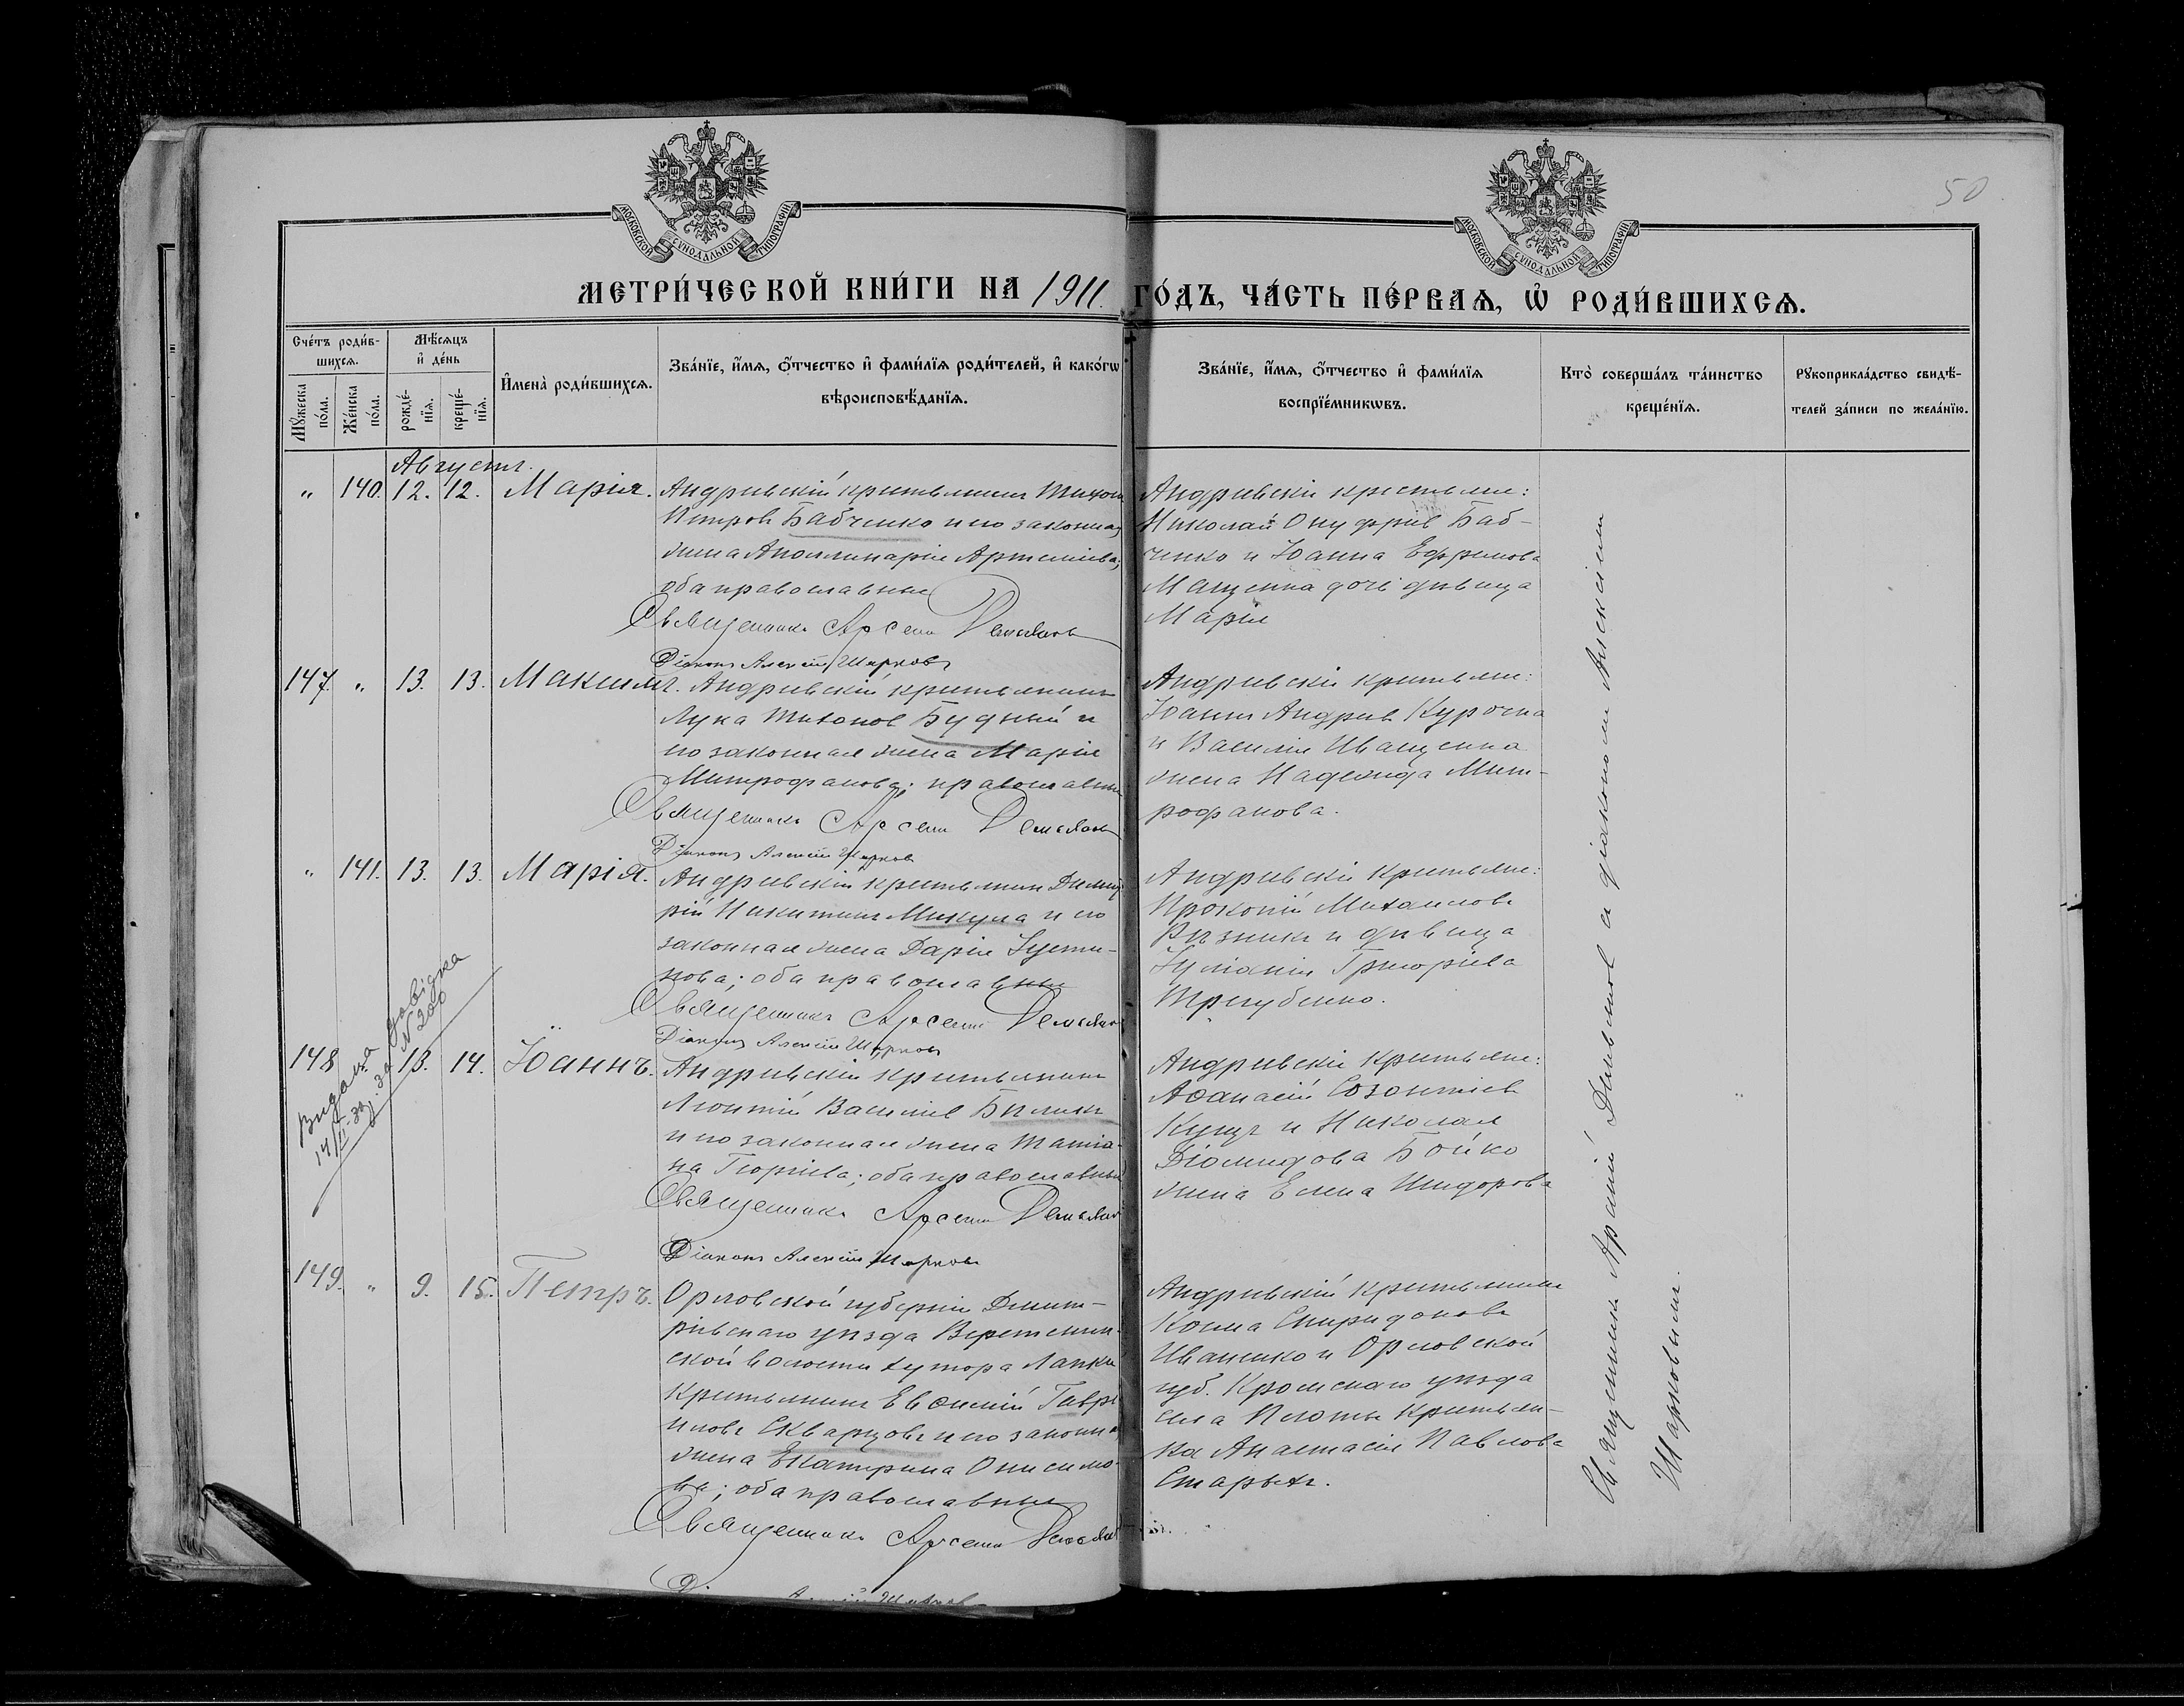 МОСКОВСКОЙ СУНОДАЛЬНОЙ ТИПОГРАФІИ
МОСКОВСКОЙ СУНОДАЛЬНОЙ ТИПОГРАФІИ
50
МЕТРИ́ЧЕСКОЙ КНИ́ГИ НА 1911. ГО́ДЪ, ЧА́СТЬ ПЕ́РВАѦ, Ѡ҆ РОДИ́ВШИХСѦ.
Сче́тъ роди́в-
шихсѧ.
Мꙋ́жеска
по́ла.
Же́нска
по́ла.
Мѣ́сѧцъ
и҆ де́нь
рожде́-
нїѧ.
креще́-
нїѧ.
И҆мена̀ роди́вшихсѧ.
Зва́нїе, и҆́мѧ, ѻ҆́тчество и҆ фами́лїѧ роди́телей, и҆ како́гѡ
вѣроисповѣ́данїѧ.
Зва́нїе, и҆́мѧ, ѻ҆́тчество и҆ фами́лїѧ
воспрїе́мникѡвъ.
Кто̀ соверша́лъ та́инство
креще́нїѧ.
Рꙋкоприкла́дство свидѣ́-
телей за́писи по жела́нїю.
Августъ.
" 140. 12. 12. Марія.
Андреевскій крестьянинъ Тихон
Петровъ Бабченко и его законная
жена Аполлинарія Артеміева;
оба православные
Священникъ Арсеній
Діаконъ Алексій Шарковъ
Андреевскіе крестьяне:
Николай Онуфріев Баб-
ченко и Іоанна Ефремова
Мащенка дочь дѣвица
Марія
147. " 13. 13. Максимъ.
Андреевскій крестьянинъ
Лука Тихонов Будный и
его законная жена Марія
Митрофанова; православные
Священникъ Арсеній
Діаконъ Алексій Шарковъ
Андреевскіе крестьяне:
Іоаннъ Андреев Курочка
и Василія Иващенка
жена Надежда Мит-
рофанова.
" 141. 13. 13. Марія.
Андреевскій крестьянин Димит
рій Никитинъ Микула и его
законная жена Дарія Іусти-
нова; оба православные
Священникъ Арсеній
Діаконъ Алексій Шарковъ
Андреевскіе крестьяне:
Прокопій Михаиловъ
Рѣзникъ и дѣвица
Іуліанія Григоріева
Трегубенко.
Видана довідка
14/ за N 200
148. " 13. 14. Іоаннъ.
Андреевскій крестьянинъ
Леонтій Василіев Биликъ
и его законная жена Татіа-
на Георгіева; оба православные
Священникъ Арсеній
Діаконъ Алексій Шарковъ
Андреевскіе крестьяне:
Аѳанасій Созонтіев
Куцъ и Николая
Діомидова Бойко
жена Елена Исидорова
149. " 9. 15. Петръ.
Орловской губерніи Дмит-
ріевскаго уѣзда Веретенин-
ской волости хутора Лапки
Крестьянинъ Евѳимій Гаврі
иловъ Скварцовъ и его законна
жена Екатерина Онисимо-
ва; оба православные
Священникъ Арсеній
Андреевскій Крестьянинъ
Косма Спиридоновъ
Иваненко и Орловской
губ. Кромскаго уѣзда
села Плоты Крестьян-
ка Анастасія Павлова
Старыхъ.
Священникъ Арсеній с діакономъ Алексіемъ
Шарковымъ.